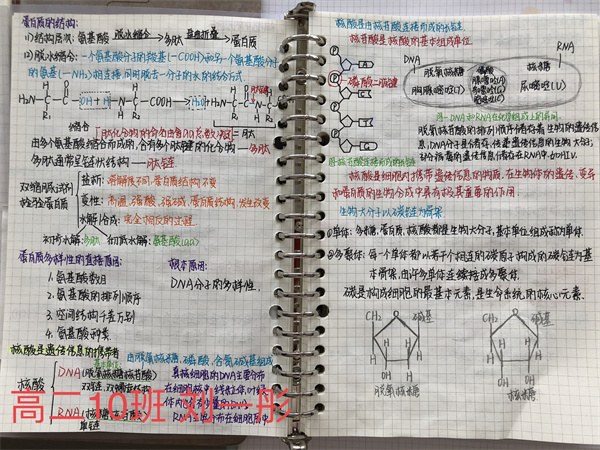 蛋白质的结构:
(1)结构层次: 氨基酸 脱水缩合→ 多肽 盘曲折叠→ 蛋白质
(2)脱水缩合: 一个氨基酸分子的羧基(-COOH)和另一个氨基酸分子
的氨基(-NH₂)相连接,同时脱去一分子的水的结合方式
缩合
由多个氨基酸缩合而成的,含有多个肽键的化合物——多肽
多肽通常呈链状结构——肽链
双缩脲试剂
检验蛋白质
盐析: 溶解性不同,蛋白质结构不变
变性: 高温、强酸、强碱,蛋白质结构发生改变
水解
初步水解: 多肽 彻底水解: 氨基酸(aa)
蛋白质多样性的直接原因:
1. 氨基酸数目
2. 氨基酸的排列顺序
3. 空间结构千差万别
4. 氨基酸种类
根本原因:
DNA分子的多样性.
核酸是遗传信息的携带者
核酸
DNA (脱氧核糖核酸)
RNA (核糖核酸)
单链
高二10班 刘一彤
核酸是由核苷酸连接而成的长链
核苷酸是核酸的基本组成单位
DNA
RNA
脱氧核糖
胸腺嘧啶(T)
核糖
尿嘧啶(U)
P
A
P
C
P
G
P
磷酸二酯键
DNA和RNA在化学组成上的异同.
脱氧核苷酸的排列顺序储存着生物的遗传信
息,DNA分子是储存、传递遗传信息的生物大分子;
部分病毒的遗传信息储存在RNA中.如HIV.
核酸是细胞内携带遗传信息的物质,在生物体的遗传、变异
和蛋白质的生物合成中具有极其重要的作用.
生物大分子以碳链为骨架
①单体: 多糖、蛋白质、核酸都是生物大分子,基本单位组成称为单体
②多聚体: 每个单体都以若干个相连的碳原子构成的碳链为基
本骨架,由许多单体连接构成多聚体.
碳是构成细胞的最基本元素,是生命系统的核心元素.
CH₂ O 碱基
H H
OH H
脱氧核糖
CH₂ O 碱基
H H
OH OH
核糖